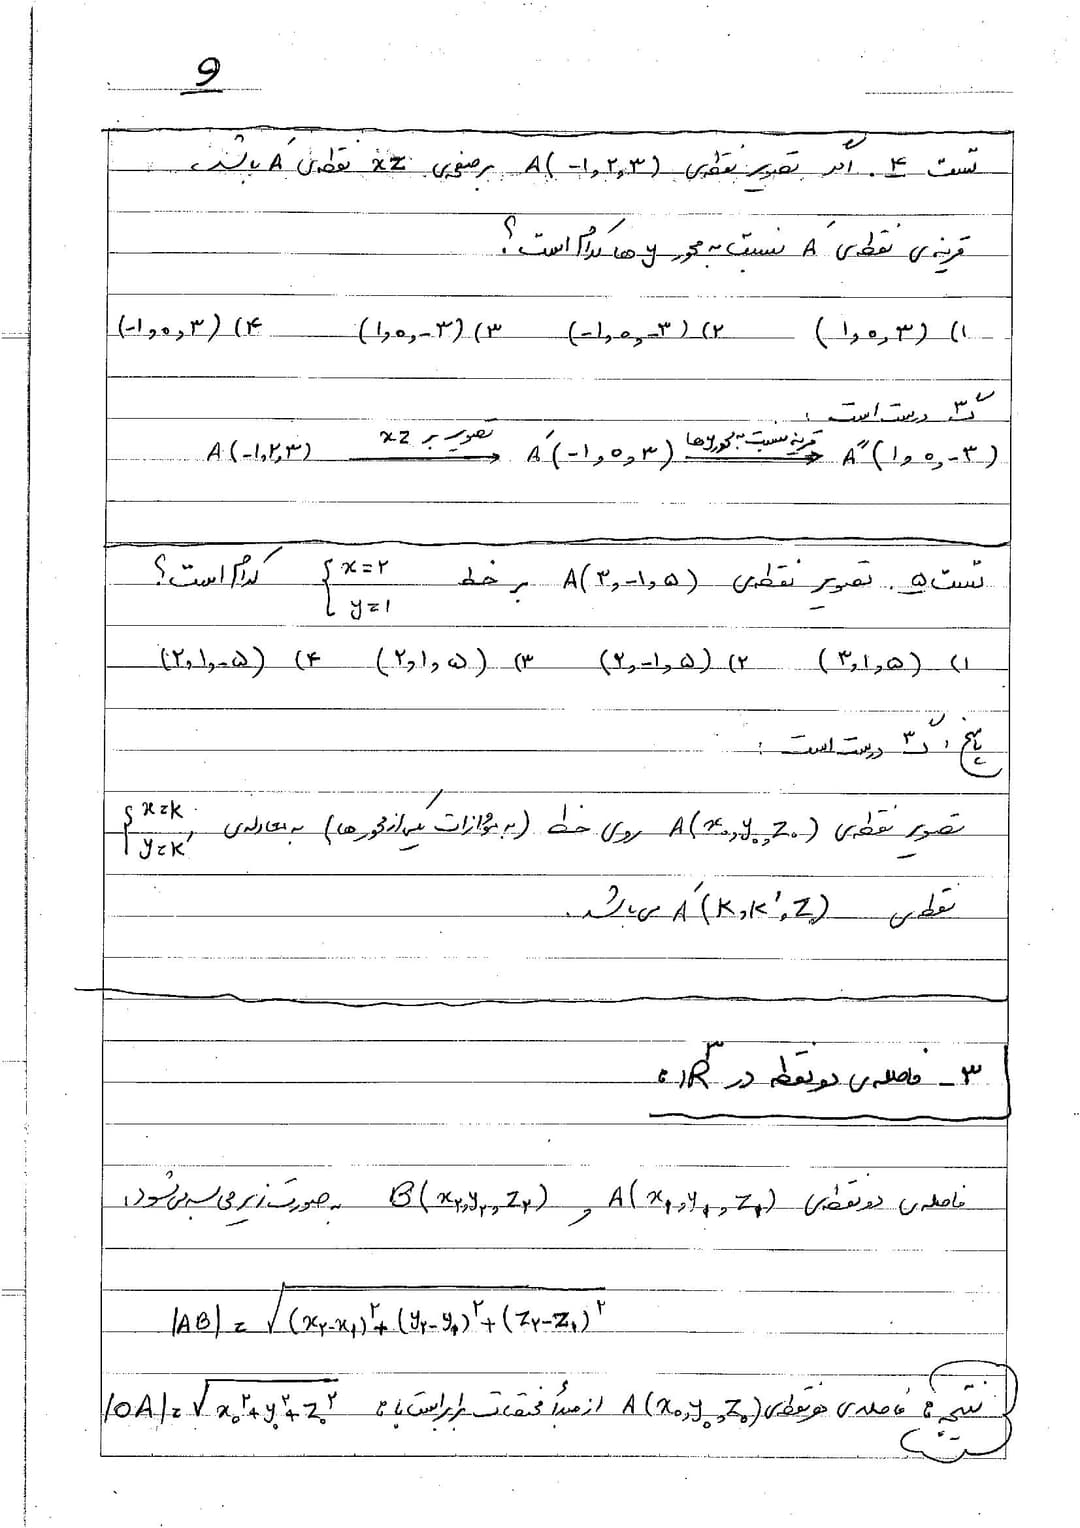 ۶
تست ۴. اگر تصویر نقطه‌ی A(-۱,۲,۳) بر صفحه‌ی xz نقطه‌ی A′ باشد،
قرینه‌ی نقطه‌ی A′ نسبت به محور y ها کدام است؟
۱) (۱,۰,۳) ۲) (-۱,۰,-۳) ۳) (۱,۰,-۳) ۴) (-۱,۰,۳)
گ ۳ درست است:
A(-۱,۲,۳) تصویر بر xz → A′(-۱,۰,۳) قرینه نسبت به محور y ها → A″(۱,۰,-۳)
تست ۵. تصویر نقطه‌ی A(۳,-۱,۵) بر خط { x=۲ y=۱ کدام است؟
۱) (۳,۱,۵) ۲) (۲,-۱,۵) ۳) (۲,۱,۵) ۴) (۲,۱,-۵)
پاسخ: گ ۳ درست است:
تصویر نقطه‌ی A(x₀,y₀,z₀) روی خط (به موازات یکی از محورها) به معادله‌ی { x=k y=k′,
نقطه‌ی A′(k,k′,z) می‌باشد.
۳- فاصله‌ی دو نقطه در R³:
فاصله‌ی دو نقطه‌ی A(x₁,y₁,z₁) و B(x₂,y₂,z₂) به صورت زیر محاسبه می‌شود:
|AB| = √((x₂-x₁)²+(y₂-y₁)²+(z₂-z₁)²)
نتیجه: فاصله‌ی هر نقطه‌ی A(x₀,y₀,z₀) از مبدأ مختصات برابر است با: |OA|=√(x₀²+y₀²+z₀²)